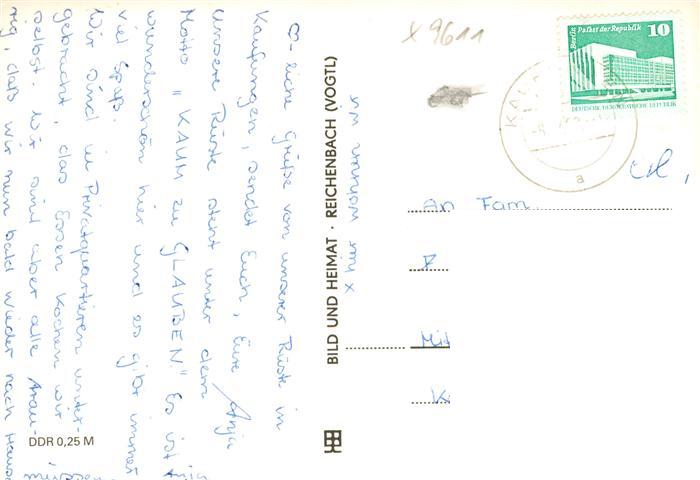 ♡-liche Grüße von unserer Rüste in
Kaufungen, sendet Euch, Eure Anja
Unsere Rüste steht unter dem
Motto "KAUM zu GLAUBEN." Es ist
wunderschön hier und es gibt immer
viel Spaß.
Wir sind in Privatquartieren unter-
gebracht, das Essen kochen wir
selbst. Wir sind aber alle trau-
rig, daß wir nun bald wieder nach Hause
DDR 0,25 M
BILD UND HEIMAT · REICHENBACH (VOGTL)
x hier wohnen wir
x 9611
Berlin, Palast der Republik
10
DEUTSCHE DEMOKRATISCHE REPUBLIK
a
An Fam.